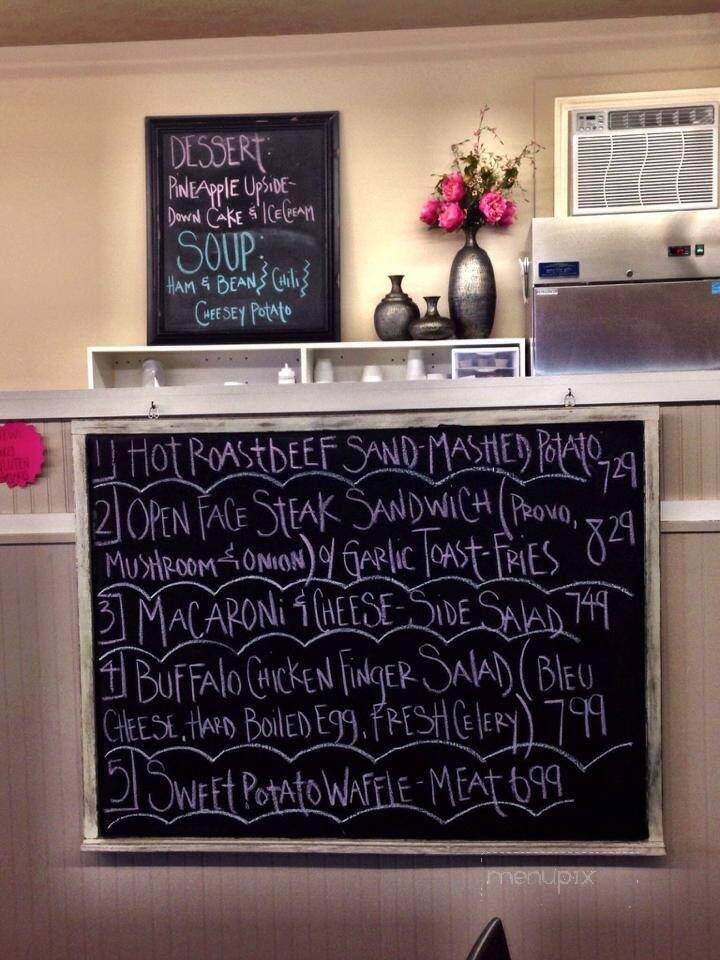 DESSERT:
PINEAPPLE UPSIDE-
DOWN CAKE & ICE CREAM
SOUP:
HAM & BEAN } CHILI }
CHEESEY POTATO
1] HOT ROAST BEEF SAND-MASHED POTATO 7.29
2] OPEN FACE STEAK SANDWICH (PROVO, 8.29
MUSHROOM & ONION) W/ GARLIC TOAST-FRIES
3] MACARONI & CHEESE-SIDE SALAD 7.49
4] BUFFALO CHICKEN FINGER SALAD (BLEU
CHEESE, HARD BOILED EGG, FRESH CELERY) 7.99
5] SWEET POTATO WAFFLE-MEAT 6.99
menupix